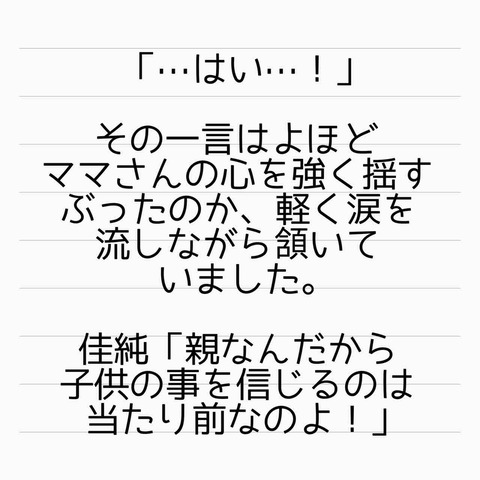 「…はい…！」
その一言はよほど
ママさんの心を強く揺す
ぶったのか、軽く涙を
流しながら頷いて
いました。
佳純「親なんだから
子供の事を信じるのは
当たり前なのよ！」